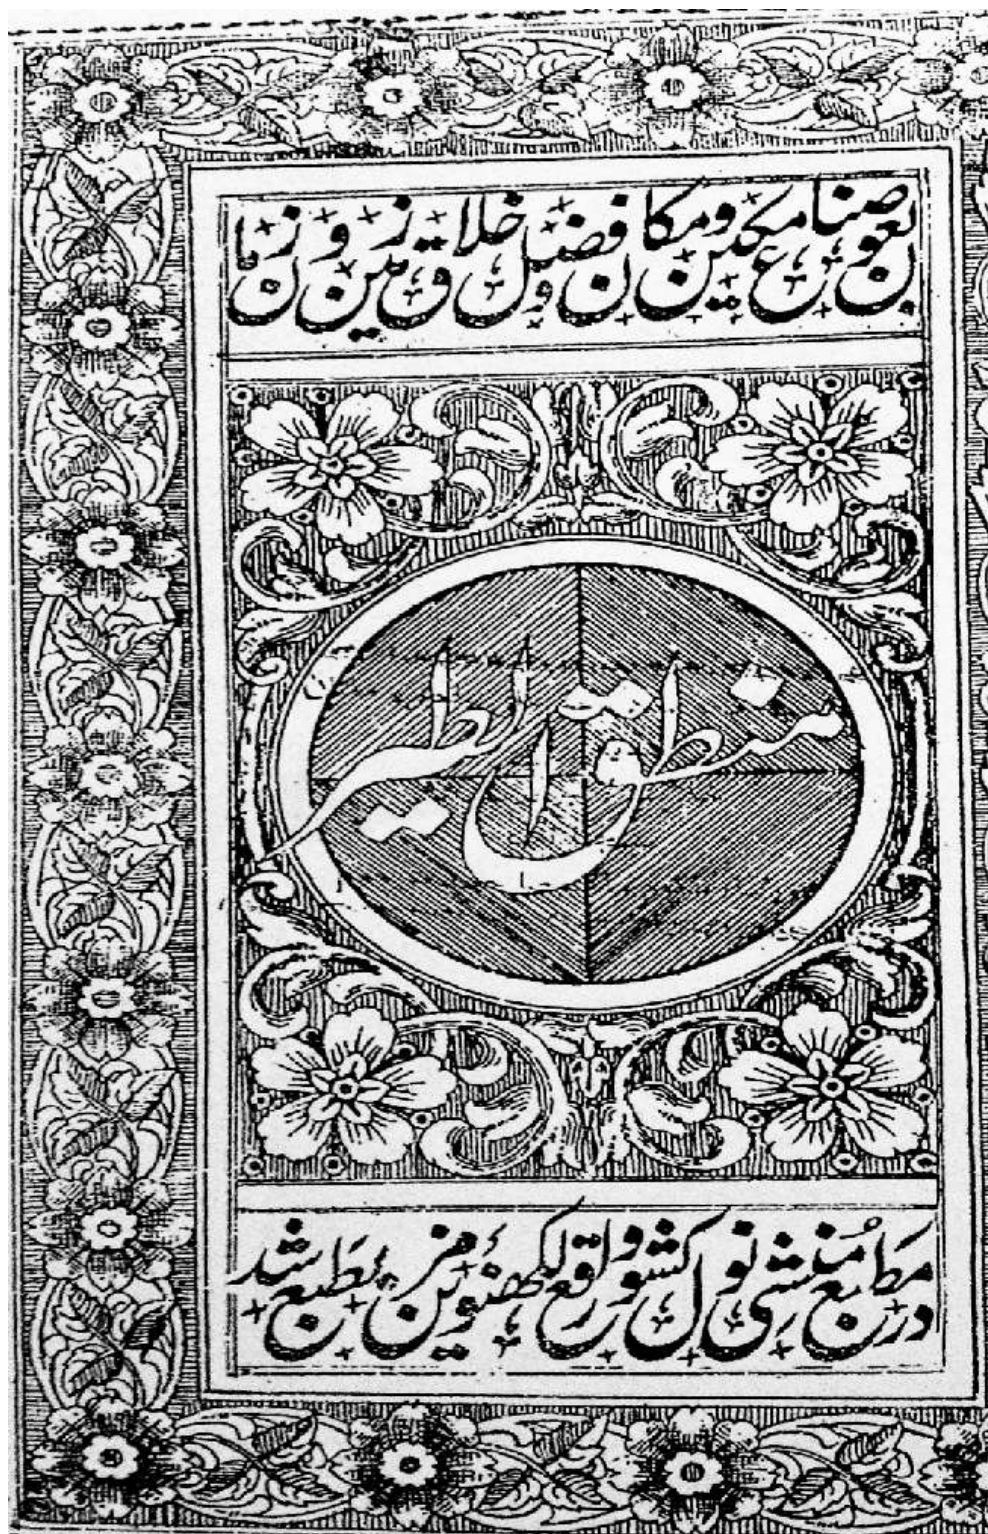 بعون صناع مکین و مکان و فضل خلاق زمین و زمان
منطق الطیر
در مطبع منشی نول کشور واقع لکھنؤ مزین بطبع شد